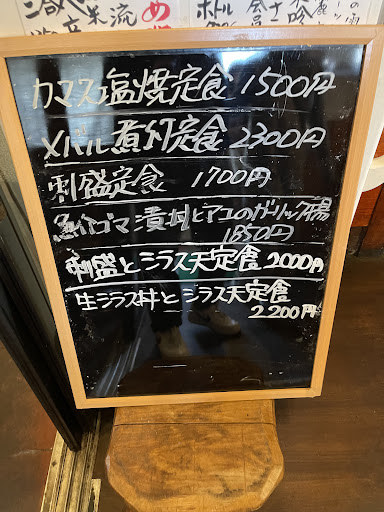 カマス塩焼定食 1500円
メバル煮付定食 2300円
刺盛定食 1700円
魚介ゴマ漬丼とアユのガーリック揚
1850円
刺盛とシラス天定食 2000円
生シラス丼とシラス天定食
2200円